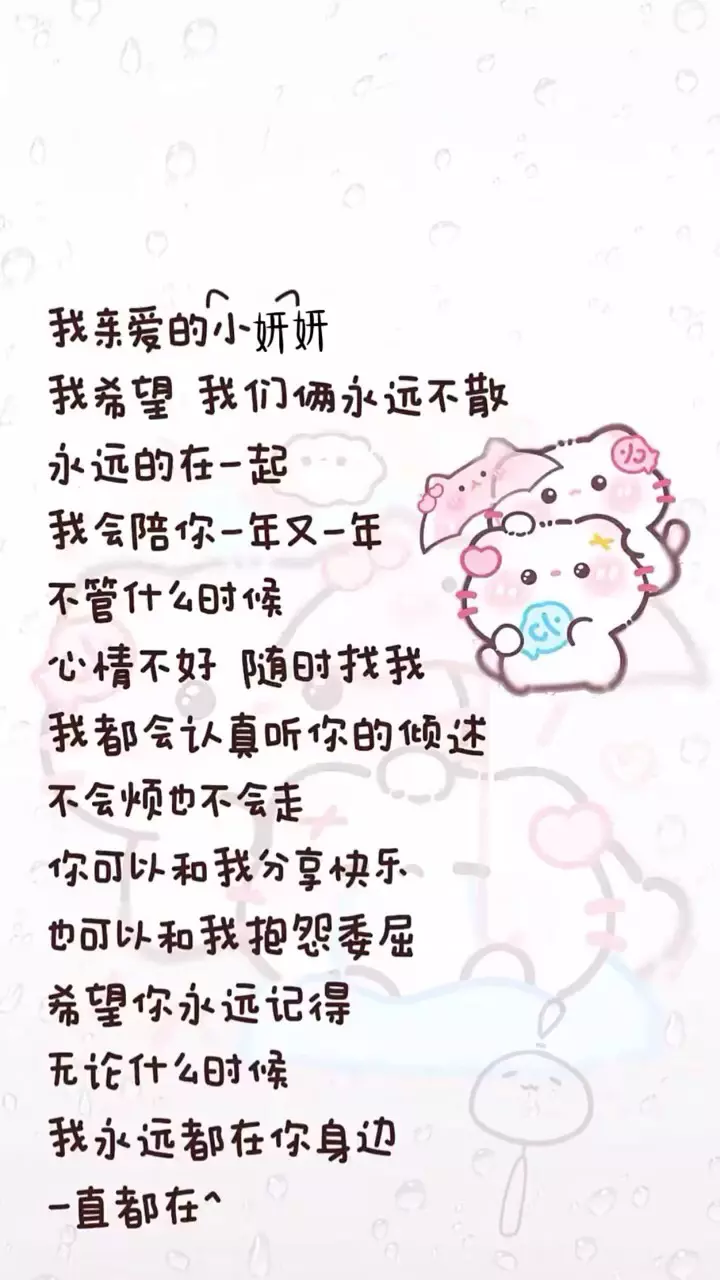 我亲爱的小妍妍
我希望 我们俩永远不散
永远的在一起
我会陪你一年又一年
不管什么时候
心情不好 随时找我
我都会认真听你的倾述
不会烦也不会走
你可以和我分享快乐
也可以和我抱怨委屈
希望你永远记得
无论什么时候
我永远都在你身边
一直都在^